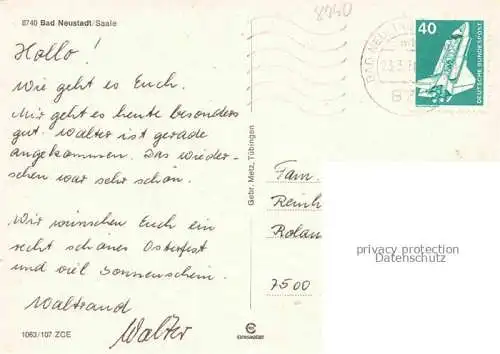 8740 Bad Neustadt/Saale
8740
Hallo!
Wie geht es Euch.
Mir geht es heute besonders
gut. Walter ist gerade
angekommen. Das Wieder-
sehen war sehr schön.
Wir wünschen Euch ein
recht schönes Osterfest
und viel Sonnenschein.
Waltraud
Walter
1063/107 ZCE
Gebr. Metz, Tübingen
BAD NEU
40
DEUTSCHE BUNDESPOST
Fam.
Reinh
Rolan
7500
privacy protection
Datenschutz